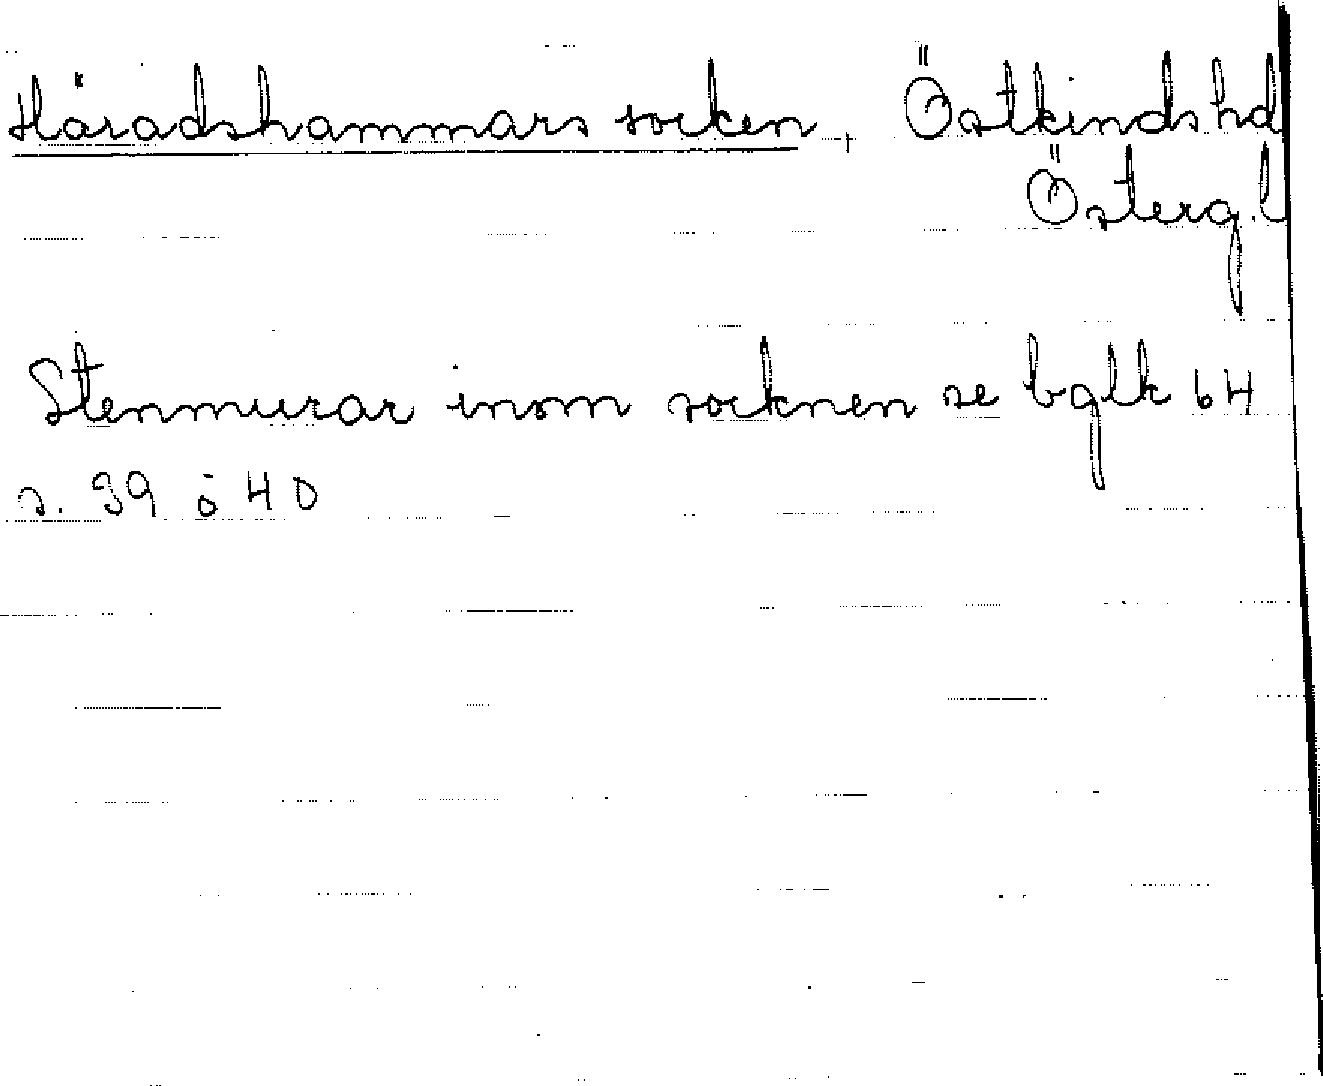 Häradshammars socken, Östkinds hd
Österg. l
Stenmurar inom socknen se bglk 64
s. 39 o 40